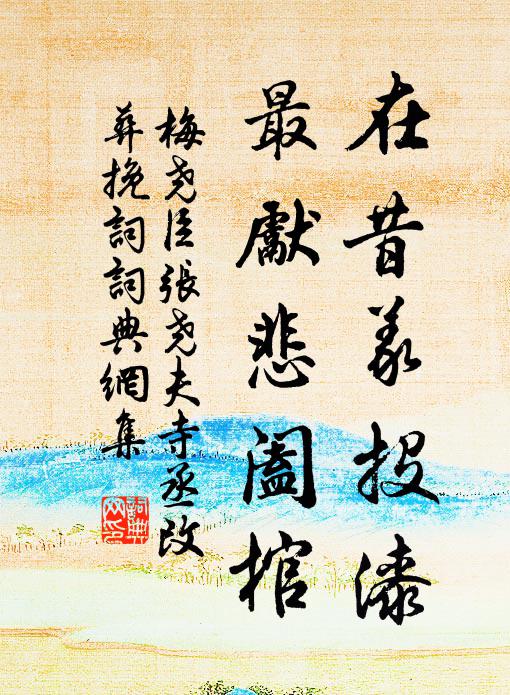 在昔義投漆
最獻悲闔棺
梅堯臣張堯夫寺丞改
葬挽詞詞典網集
詞典
网印